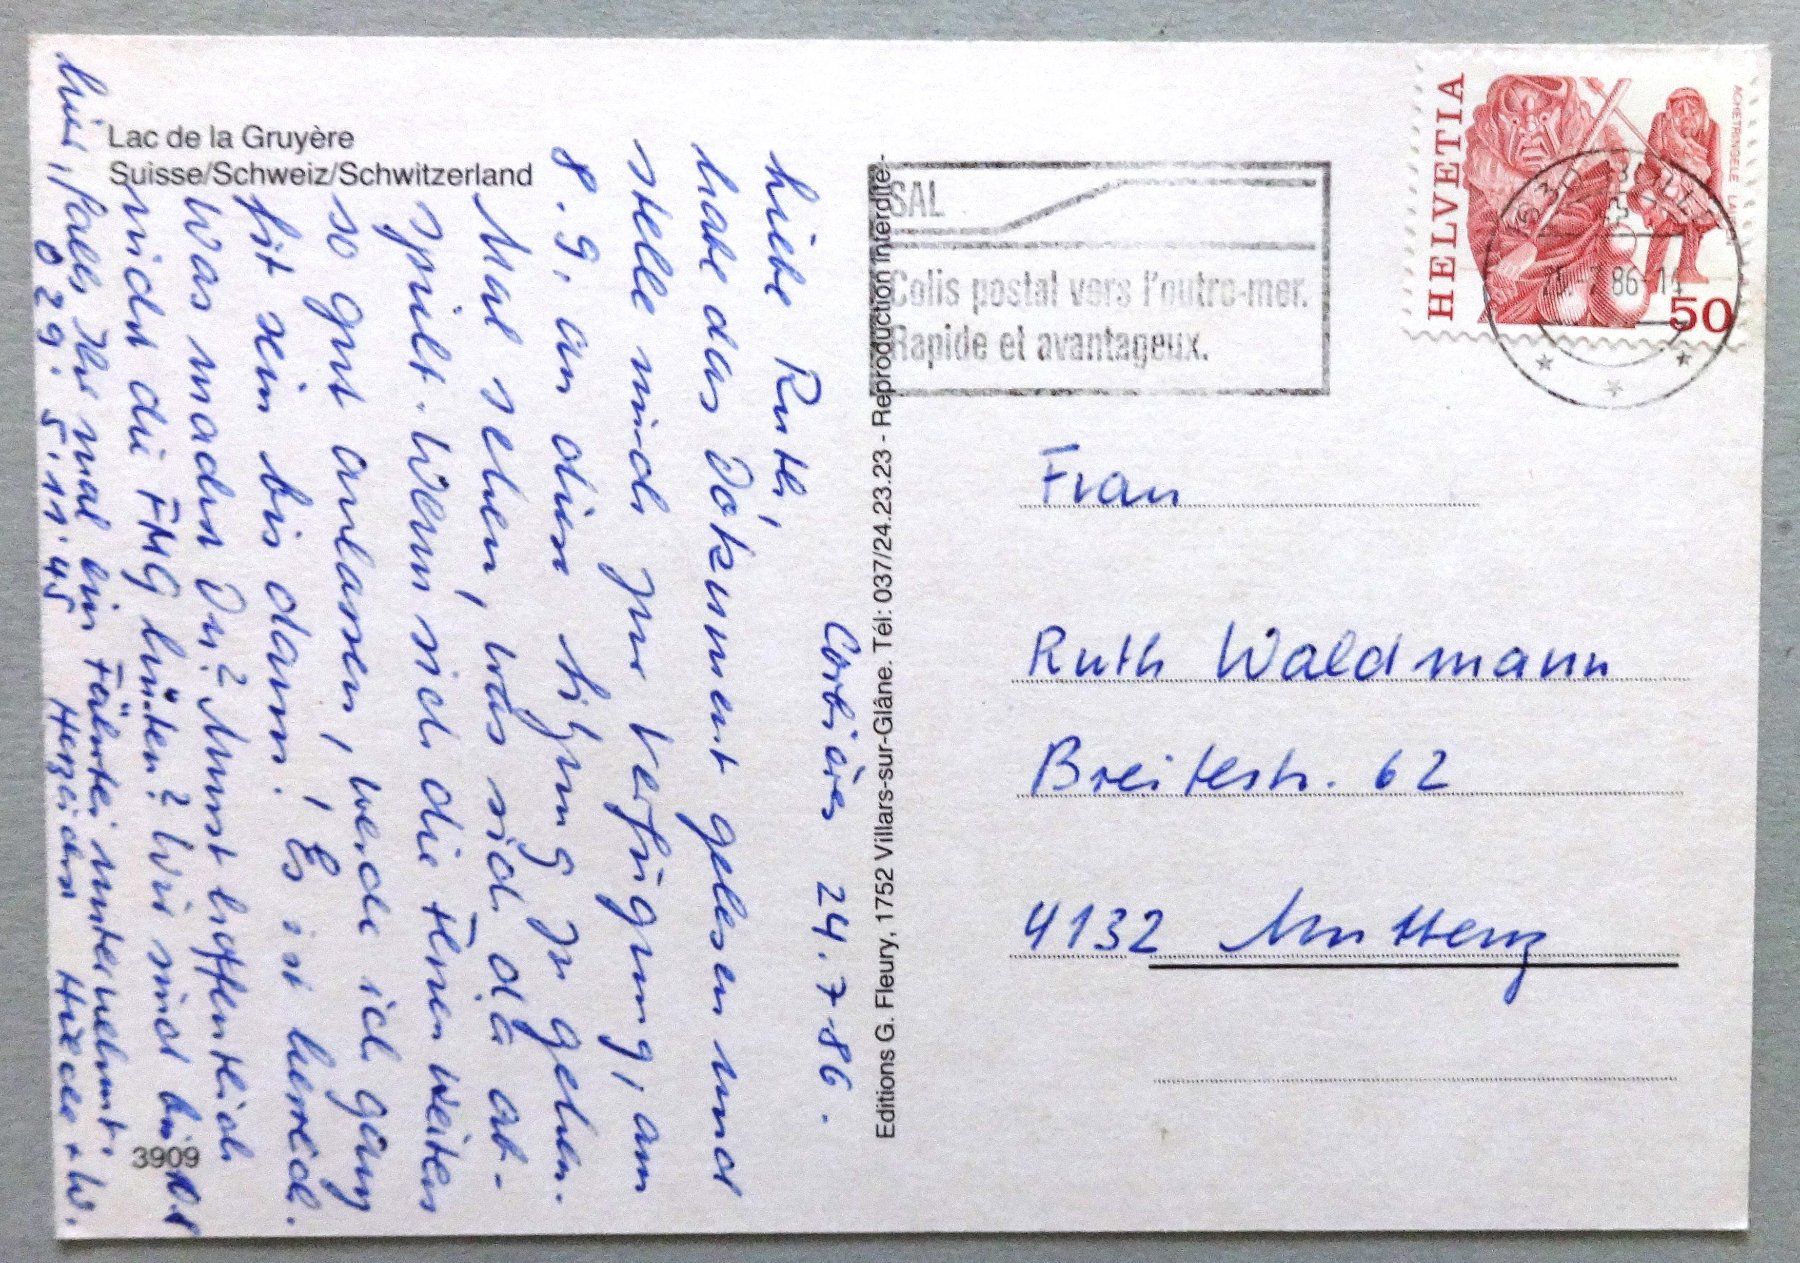 Lac de la Gruyère
Suisse/Schweiz/Schwitzerland
Corbières 24.7.86.
Liebe Ruth,
habe das Dokument gelesen und
stelle mich zur Verfügung, am
8.9. an dieser Sitzung zu gehen.
Mal sehen, was sich da ab-
spielt. Wenn sich die Ferien weiters
so gut anlassen, werde ich ganz
fit sein bis dann. Es ist herrlich.
Was machst Du? Musst hoffentlich
nicht die FMG hüten? Wir sind
hier, falls Ihr mal ein Fährtei unternehmt.
029. 5.11.45 Herzlichst + W.
3909
Editions G. Fleury, 1752 Villars-sur-Glâne. Tél: 037/24.23.23 - Reproduction interdite-
SAL
Colis postal vers l'outre-mer.
Rapide et avantageux.
HELVETIA
ACHETRINGELE LAUPEN
50
1630 BULLE
86-14
Frau
Ruth Waldmann
Breitestr. 62
4132 Muttenz